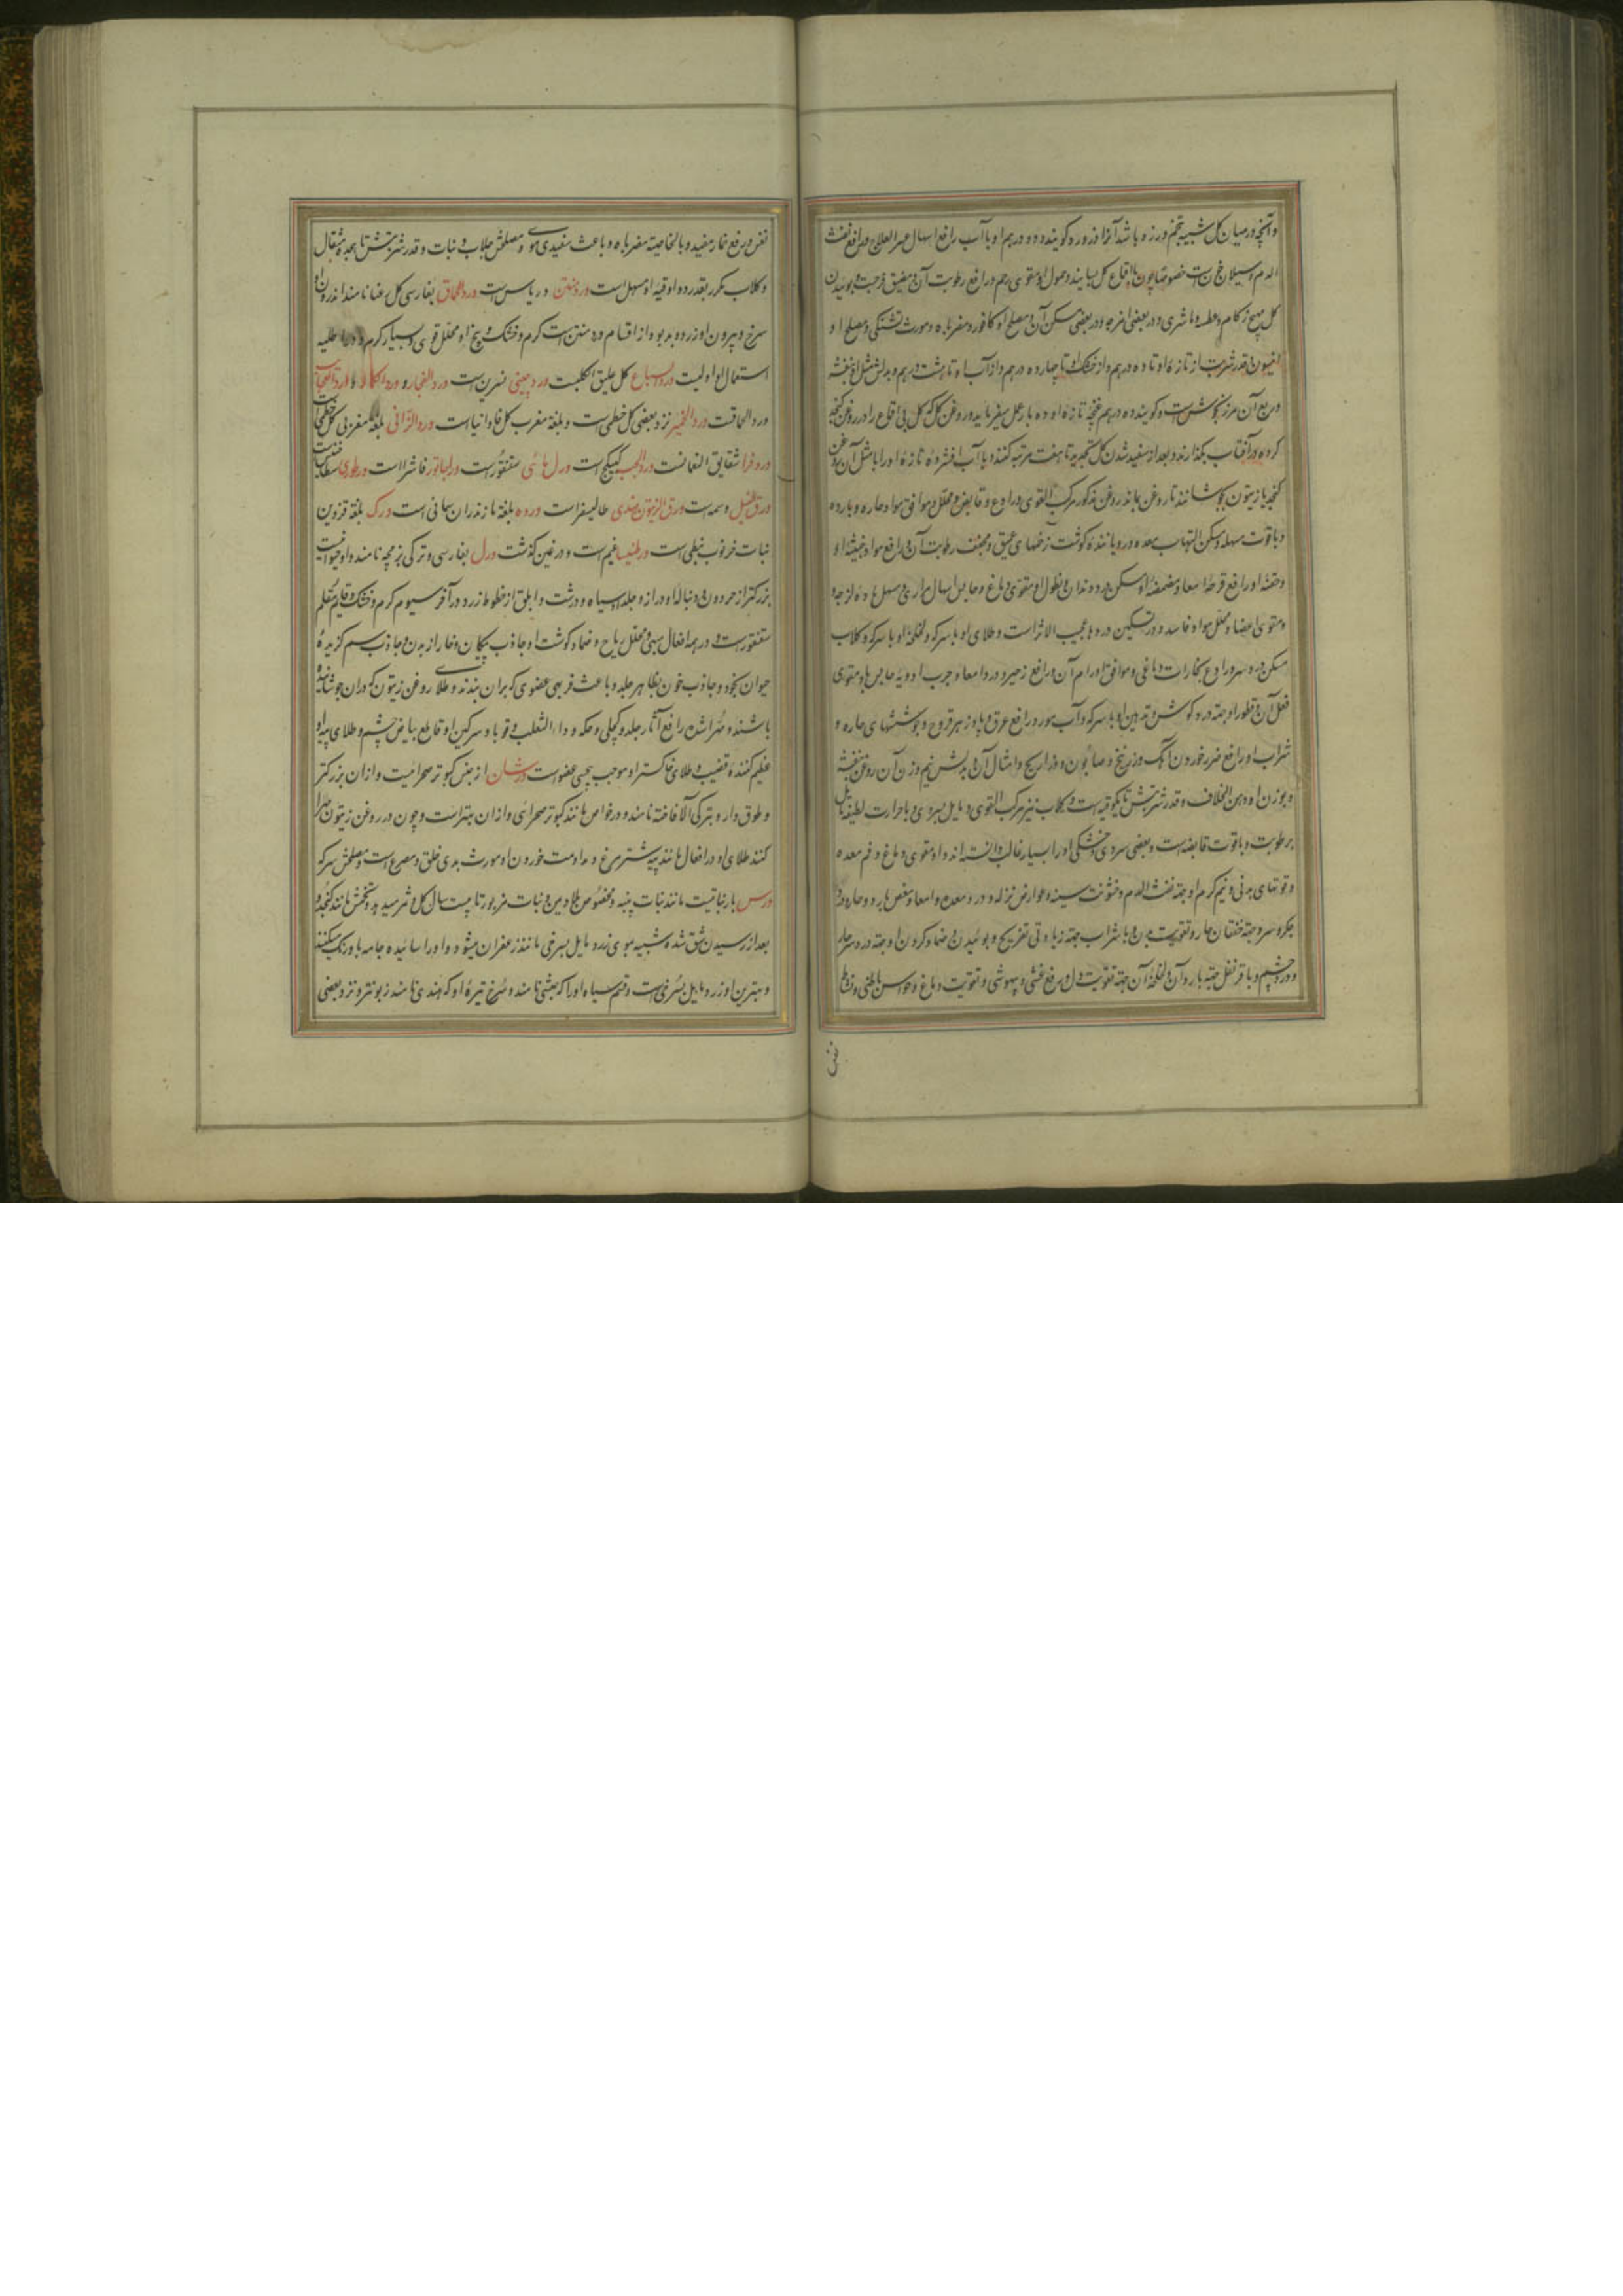 و آنچه در میان گل شبیه بتخم در زه باشد آنرا از ورد گویند و دو درهم او با آب رافع اسهال عسر العلاج و رافع نفث
الدم و سیلان خون است خصوصا چون با اقماع گل بسایند و حمول او مقوی رحم و رافع رطوبت آن و مضیق فرجست و بوئیدن
گل مهیج زکام و عطسه و ماشری و در بعضی امزجه و در بعضی مسکن آن و مصلح او کافور و مضر باه و مورث تشنگی و مصلح او
انیسون و قدر شربت از تازه او تا ده درهم و از خشک او تا چهار درهم و از آب او تا هشت درهم و بدلش مثل او بنفشه
و ربع آن مرزنجوش است و گویند ده درهم غنچه تازه او ده بار عمل میفرماید و روغن گل که گل بی اقماع را در روغن کنجد
کرده در آفتاب بگذارند و بعد از سفید شدن گل تجدید تا هفت مرتبه کنند و یا آب افشرده تازه او را با مثل آن روغن
کنجد یا زیتون بجوشانند تا روغن بماند و روغن مذکور مرکب القوی و رادع و قابض و محلل و موافق مواد حاره و بارده
و با قوت مسهله و مسکن التهاب معده و رویاننده گوشت زخمهای عمیق و مجفف رطوبت آن و رافع مواد خبیثه او
و حقنه او رافع قرحه امعا و مضمضه او مسکن درد دندان و نطول او مقوی دماغ و حابس اسهال مراری و مسهل ماده لزجه
و مقوی اعضا و محلل مواد فاسده و در تسکین دردها عجیب الاثر است و طلای او با سرکه و لخلخه او با سرکه و گلاب
مسکن درد سر و رادع بخارات دماغی و موافق اورام آن و رافع زحیر و درد امعا و جرب ادویه حابس ها و مقوی
فعل آن و قطور او جهة درد گوش و تدهین او با سرکه و آب مورد رافع عرق و با وز هر قروح و جوششهای حاره و
شراب او رافع ضرر خوردن آهک و زرنیخ و صابون و ذراریح و امثال آن و بدلش نیم وزن آن روغن بنفشه
و بوزن او دهن الخلاف و قدر شربتش تا یکوقیه است و گلاب نیز مرکب القوی و مایل بسردی و با حرارت لطیفه مایل
برطوبت و با قوت قابضه است و بعضی سردی و خشکی او را بسیار غالب دانسته اند و او مقوی دماغ و فم معده
و قوتهای بدنی و نیم گرم او جهة نفث الدم و خشونت سینه و عوارض نزله و درد معده و امعا و مغص بارد و حاره درد
جگر و سرد جهة خفقان حار و تقویت بدن و با شراب جهة زیادتی تفریح و بوئیدن و ضماد کردن او جهة درد سر حار
و درد چشم و با قرنفل جهة بارد آن و لخلخه آن جهة تقویت دل و رفع غشی و بیهوشی و تقویت دماغ و حواس باطنی و نشاط
نفس
نفس و رفع خمار مفید و بالخاصیة مضر باه و باعث سفیدی موی و مصلحش جلاب و نبات و قدر شربتش تا هجده مثقال
و گلاب مکرر بقدر دو اوقیه او مسهل است ورد منتن دریاس است ورد الحماق بفارسی گل عنا نامند اندرون او
سرخ و بیرون او زرد و بدبو و از اقسام ورد منتن است گرم و خشک و بیخ او محلل قوی و بسیار گرم و در اطلیه
استعمال او اولیست ورد السباع گل علیق الکلبست ورد چینی نسرین است ورد الفجار و ورد
ورد الحماقت ورد الخمیر نزد بعضی گل خطمی است و بلغة مغرب گل فاوانیا است ورد الزوانی بلغة مغربی گل خطمی است
ورد فرا شقایق النعمانست ورد الحب کبیکج است ورل مائی سقنقور است ورلجانور فاشرا است
ورق النیل وسمه است ورق الزیتون هندی طالیسفر است ورده بلغة مازندران سانی است ورک بلغة قزوین
نبات خرنوب نبطی است ورطنیا غیم است و در غین گذشت ورل بفارسی و ترکی بزمجه نامند و او حیوانیست
بزرگتر از حردون و دنباله او دراز و جلد او سیاه و درشت و ابلق از خطوط زرد در آخر سیوم گرم و خشک و قایم مقام
سقنقور است و در همه افعال مبهی و محلل ریاح و ضماد گوشت او جاذب پیکان و خار از بدن و جاذب سم گزیده
حیوان بخود و جاذب خون بظاهر جلد و باعث فربهی عضوی که بر آن بندند و طلای روغن زیتون که در آن جوشانیده
باشند و مهرا شده رافع آثار جلد و کچلی و حکه و داء الثعلب و قوبا و سرگین او قاطع بیاض چشم و طلای پیه او
عظیم کننده قضیب و طلای خاکستر او موجب بیحسی عضو است ورشان از جنس کبوتر صحرائیست و از آن بزرگتر
و طوق دار و بترکی آلا فاخته نامند و در خواص مانند کبوتر صحرائی و از آن بهتر است و چون در روغن زیتون مهرا
کنند طلای او در افعال مانند پیه شتر مرغ و مداومت خوردن او مورث بدی خلق و مصرع است و مصلحش سرکه
ورس بار نباتیست مانند نبات پنبه و مخصوص بلاد یمن و نبات مزبور تا بیست سال گل و ثمر میدهد و تخمش مانند کنجد و
بعد از رسیدن شق شده شبیه بموی زرد مایل بسرخی مانند زعفران میشود و او را سائیده جامه با و رنگ میکنند
و بهترین او زرد مایل بسرخی است و قسم سیاه او را که حبشی نامند و سرخ تیره او که هندی نامند زبونتر و نزد بعضی